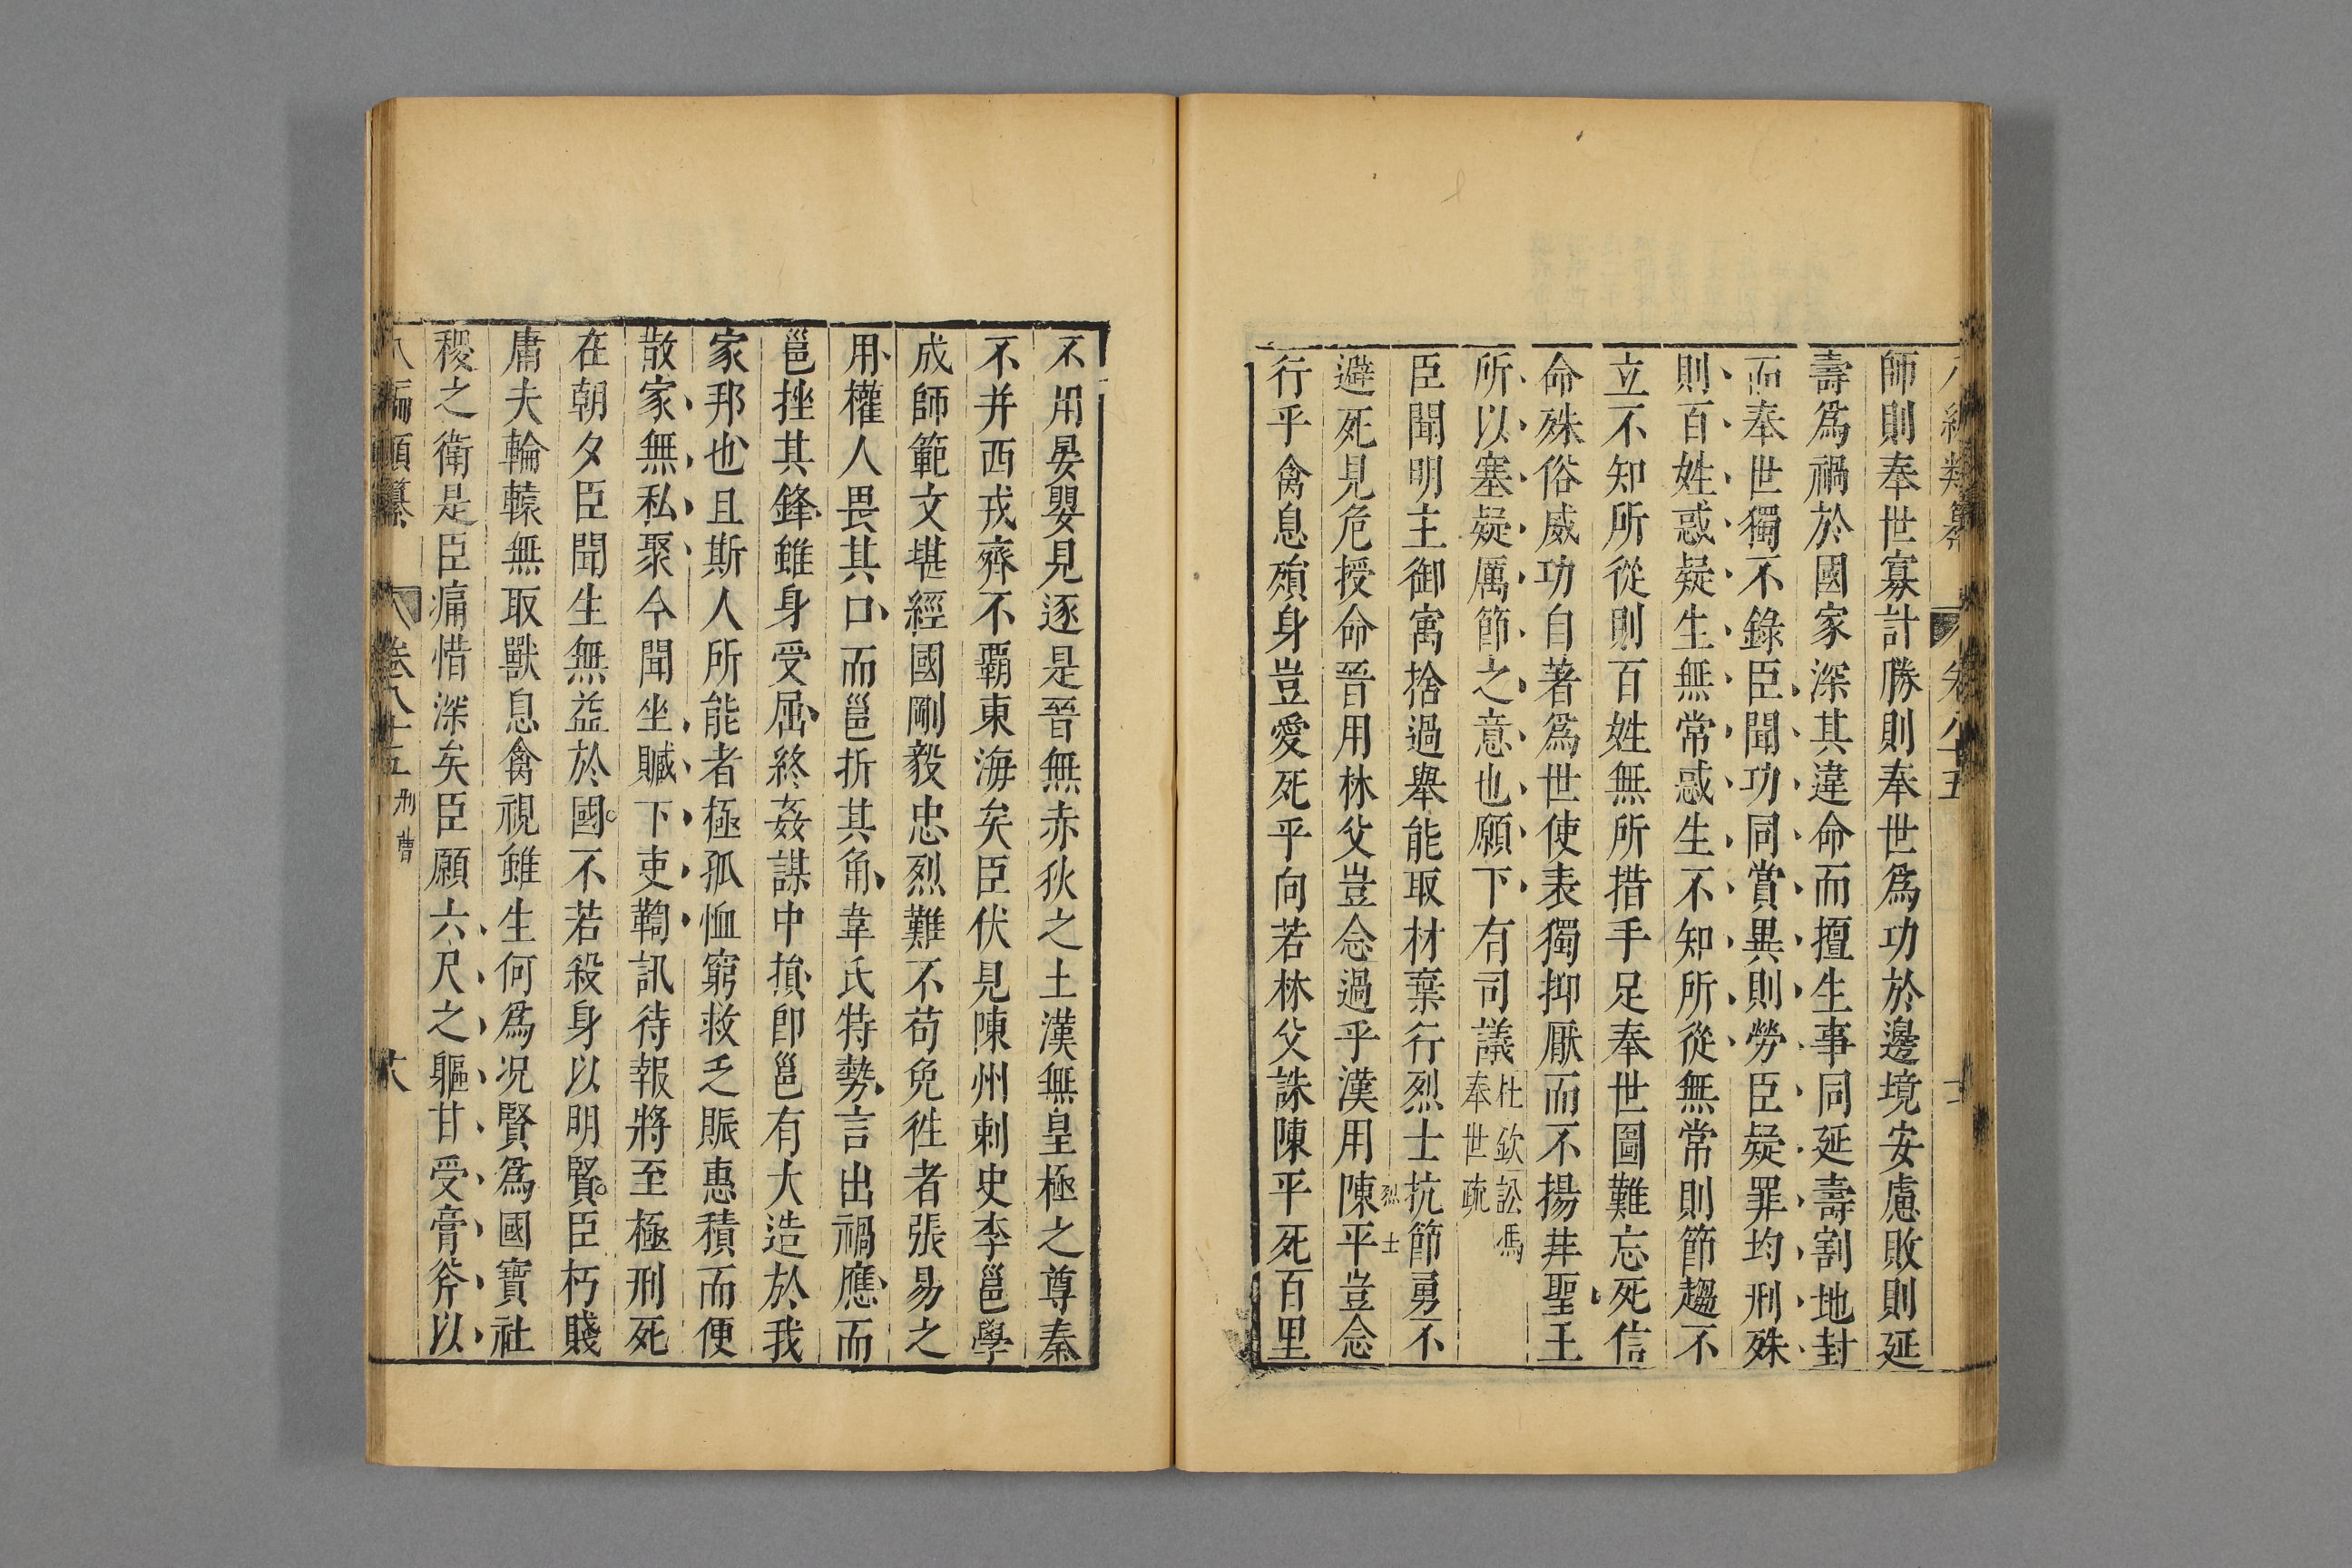 八編類纂 卷八十五
師則奉世寡計勝則奉世爲功於邊境安慮敗則延
壽爲禍於國家深其違命而擅生事同延壽割地封
而奉世獨不錄臣聞功同賞異則勞臣疑罪均刑殊
則百姓惑疑生無常惑生不知所從無常則節趨不
立不知所從則百姓無所措手足奉世圖難忘死信
命殊俗威功自著爲世使表獨抑厭而不揚非聖王
所以塞疑厲節之意也願下有司議杜欽訟馮奉世疏
臣聞明主御寓捨過舉能取材棄行烈士抗節勇不
烈士
避死見危授命晉用林父豈念過乎漢用陳平豈念
行乎禽息殞身豈愛死乎向若林父誅陳平死百里
不用晏嬰見逐是晉無赤狄之土漢無皇極之尊秦
不并西戎齊不覇東海矣臣伏見陳州刺史李邕學
成師範文堪經國剛毅忠烈難不苟免徃者張易之
用權人畏其口而邕折其角韋氏特勢言出禍應而
邕挫其鋒雖身受屈終姦謀中損卽邕有大造於我
家邦也且斯人所能者極孤恤窮救乏賑惠積而便
散家無私聚今聞坐贓下吏鞫訊待報將至極刑死
在朝夕臣聞生無益於國不若殺身以明賢臣朽賤
庸夫輪轅無取獸息禽視雖生何爲况賢爲國寶社
稷之衛是臣痛惜深矣臣願六尺之軀甘受膏斧以
八編類纂 卷八十五 刑曹